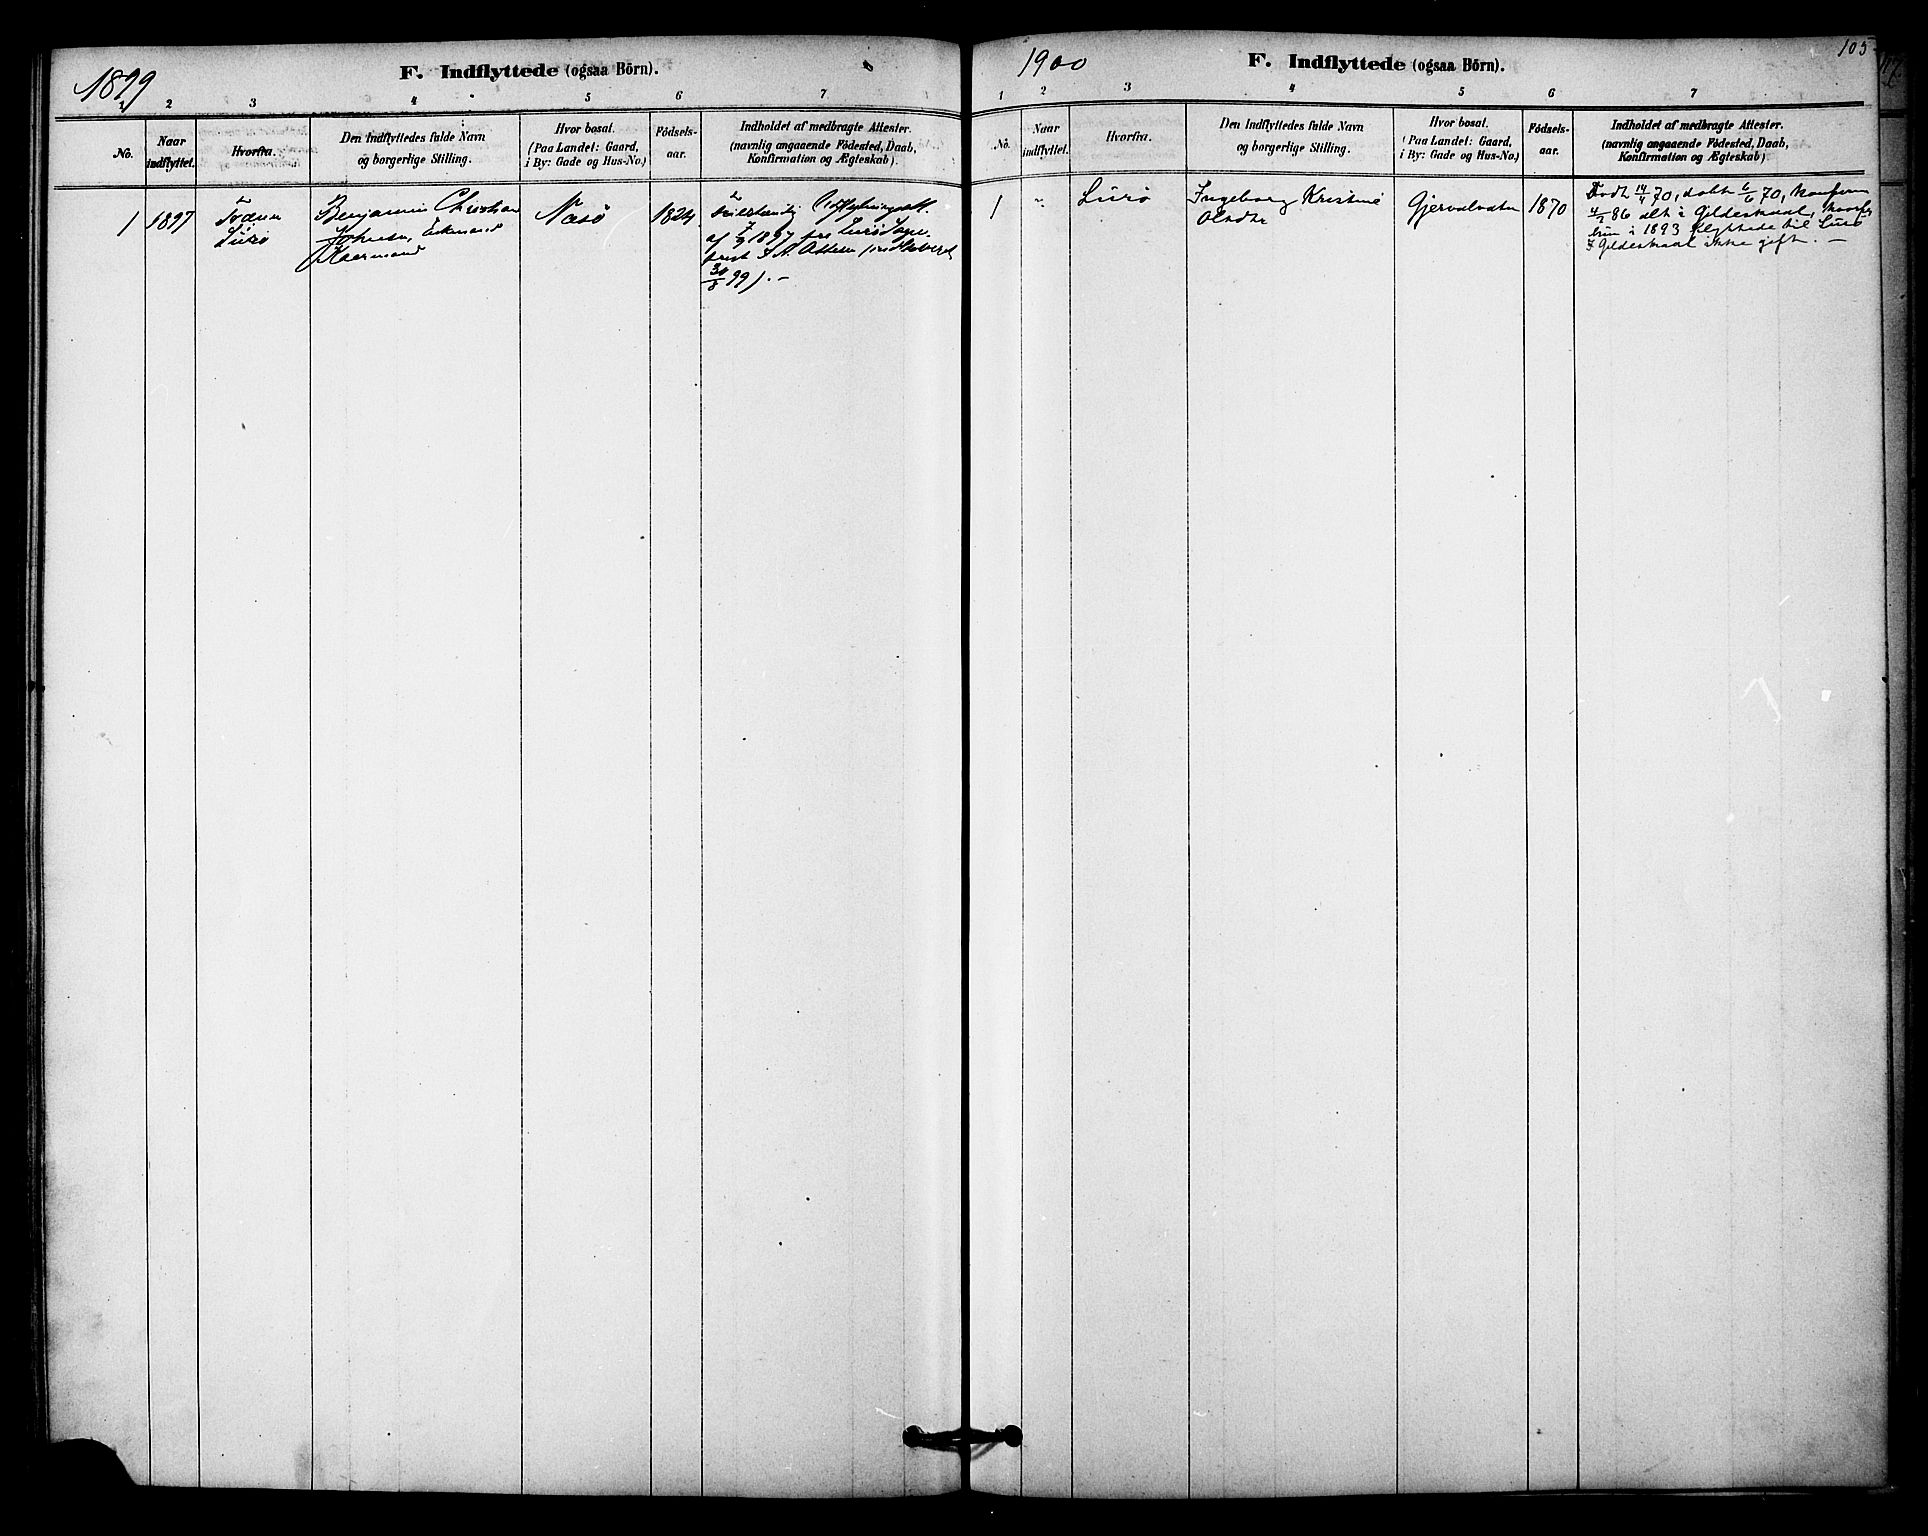 1899
F. Indflyttede (ogsaa Börn).
1 2 3 4 5 6 7
No.
Naar
indflyttet.
Hvorfra.
Den Indflyttedes fulde Navn
og borgerlige Stilling.
Hvor bosat.
(Paa Landet: Gaard,
i By: Gade og Hus-No.)
Födsels-
aar.
Indholdet af medbragte Attester.
(navnlig angaaende Födested, Daab,
Konfirmation og Ægteskab).
1
1897
Lurö
Benjamin Christian
Johnsen,
Næsö
1824
Udflytningsatt.
af 7/9 1897 fra Lurö Sogne-
prest
30/8 99). —
1900
F. Indflyttede (ogsaa Börn).
105
1 2 3 4 5 6 7
No.
Naar
indflyttet.
Hvorfra.
Den Indflyttedes fulde Navn
og borgerlige Stilling.
Hvor bosat.
(Paa Landet: Gaard,
i By: Gade og Hus-No.)
Födsels-
aar.
Indholdet af medbragte Attester.
(navnlig angaaende Födested, Daab,
Konfirmation og Ægteskab).
1
"
Lurö
Ingeborg Kristine
Olsdtr
Gjervalvatn
1870
Födt 14/4 70, døbt 6/6 70, konfirm
86 alt i Gildeskaal,
hun i 1893 flyttede til Lurö
I Gildeskaal ikke gift. —